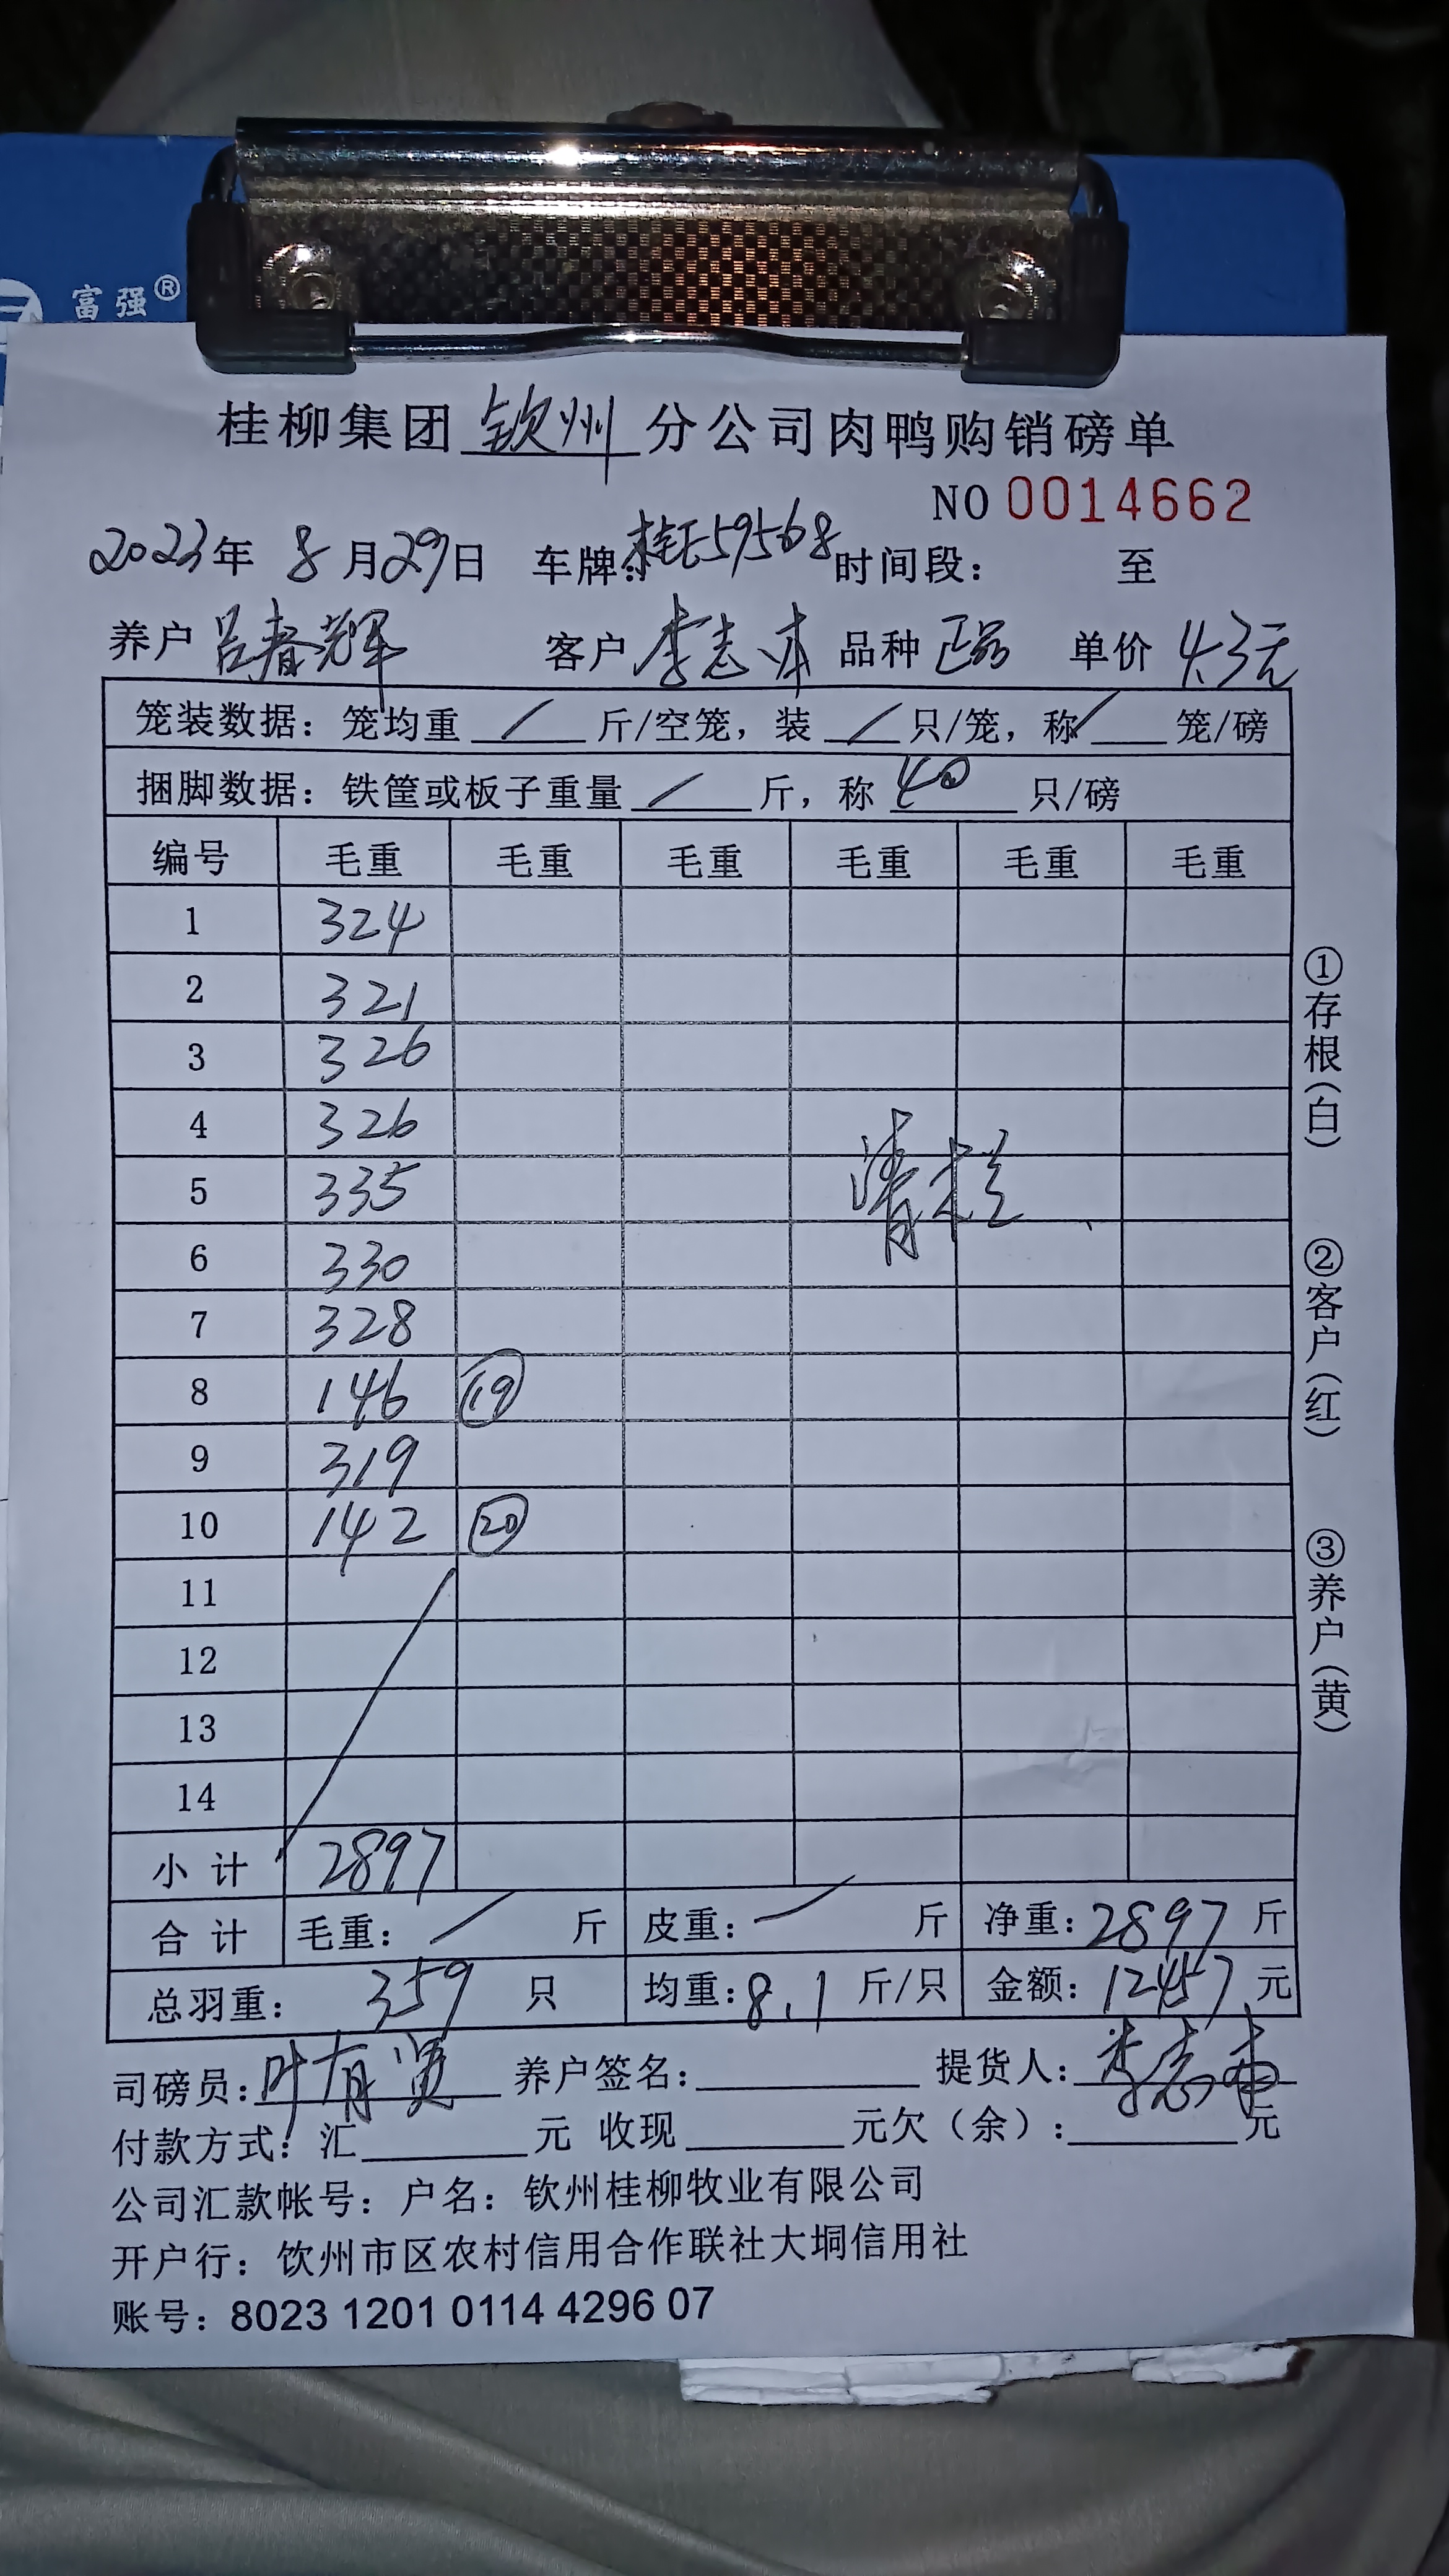 富强®
桂柳集团钦州分公司肉鸭购销磅单
NO 0014662
2023年 8月29日 车牌:桂E59568时间段: 至
养户 吕春辉 客户 李志 品种 正品 单价 4.3元
笼装数据: 笼均重 / 斤/空笼, 装 / 只/笼, 称 / 笼/磅
捆脚数据: 铁筐或板子重量 / 斤, 称 40 只/磅
编号 毛重 毛重 毛重 毛重 毛重 毛重
1 324
2 321
3 326
4 326
5 335
清栏
6 330
7 328
8 146 ⑲
9 319
10 142 ⑳
11
12
13
14
小计 2897
合计 毛重: / 斤 皮重: / 斤 净重: 2897 斤
总羽重: 359 只 均重: 8.1 斤/只 金额: 12457 元
司磅员: 叶有贤 养户签名: 提货人: 李志
付款方式: 汇 元 收现 元欠(余): 元
公司汇款帐号: 户名: 钦州桂柳牧业有限公司
开户行: 钦州市区农村信用合作联社大垌信用社
账号: 8023 1201 0114 4296 07
①存根(白)
②客户(红)
③养户(黄)